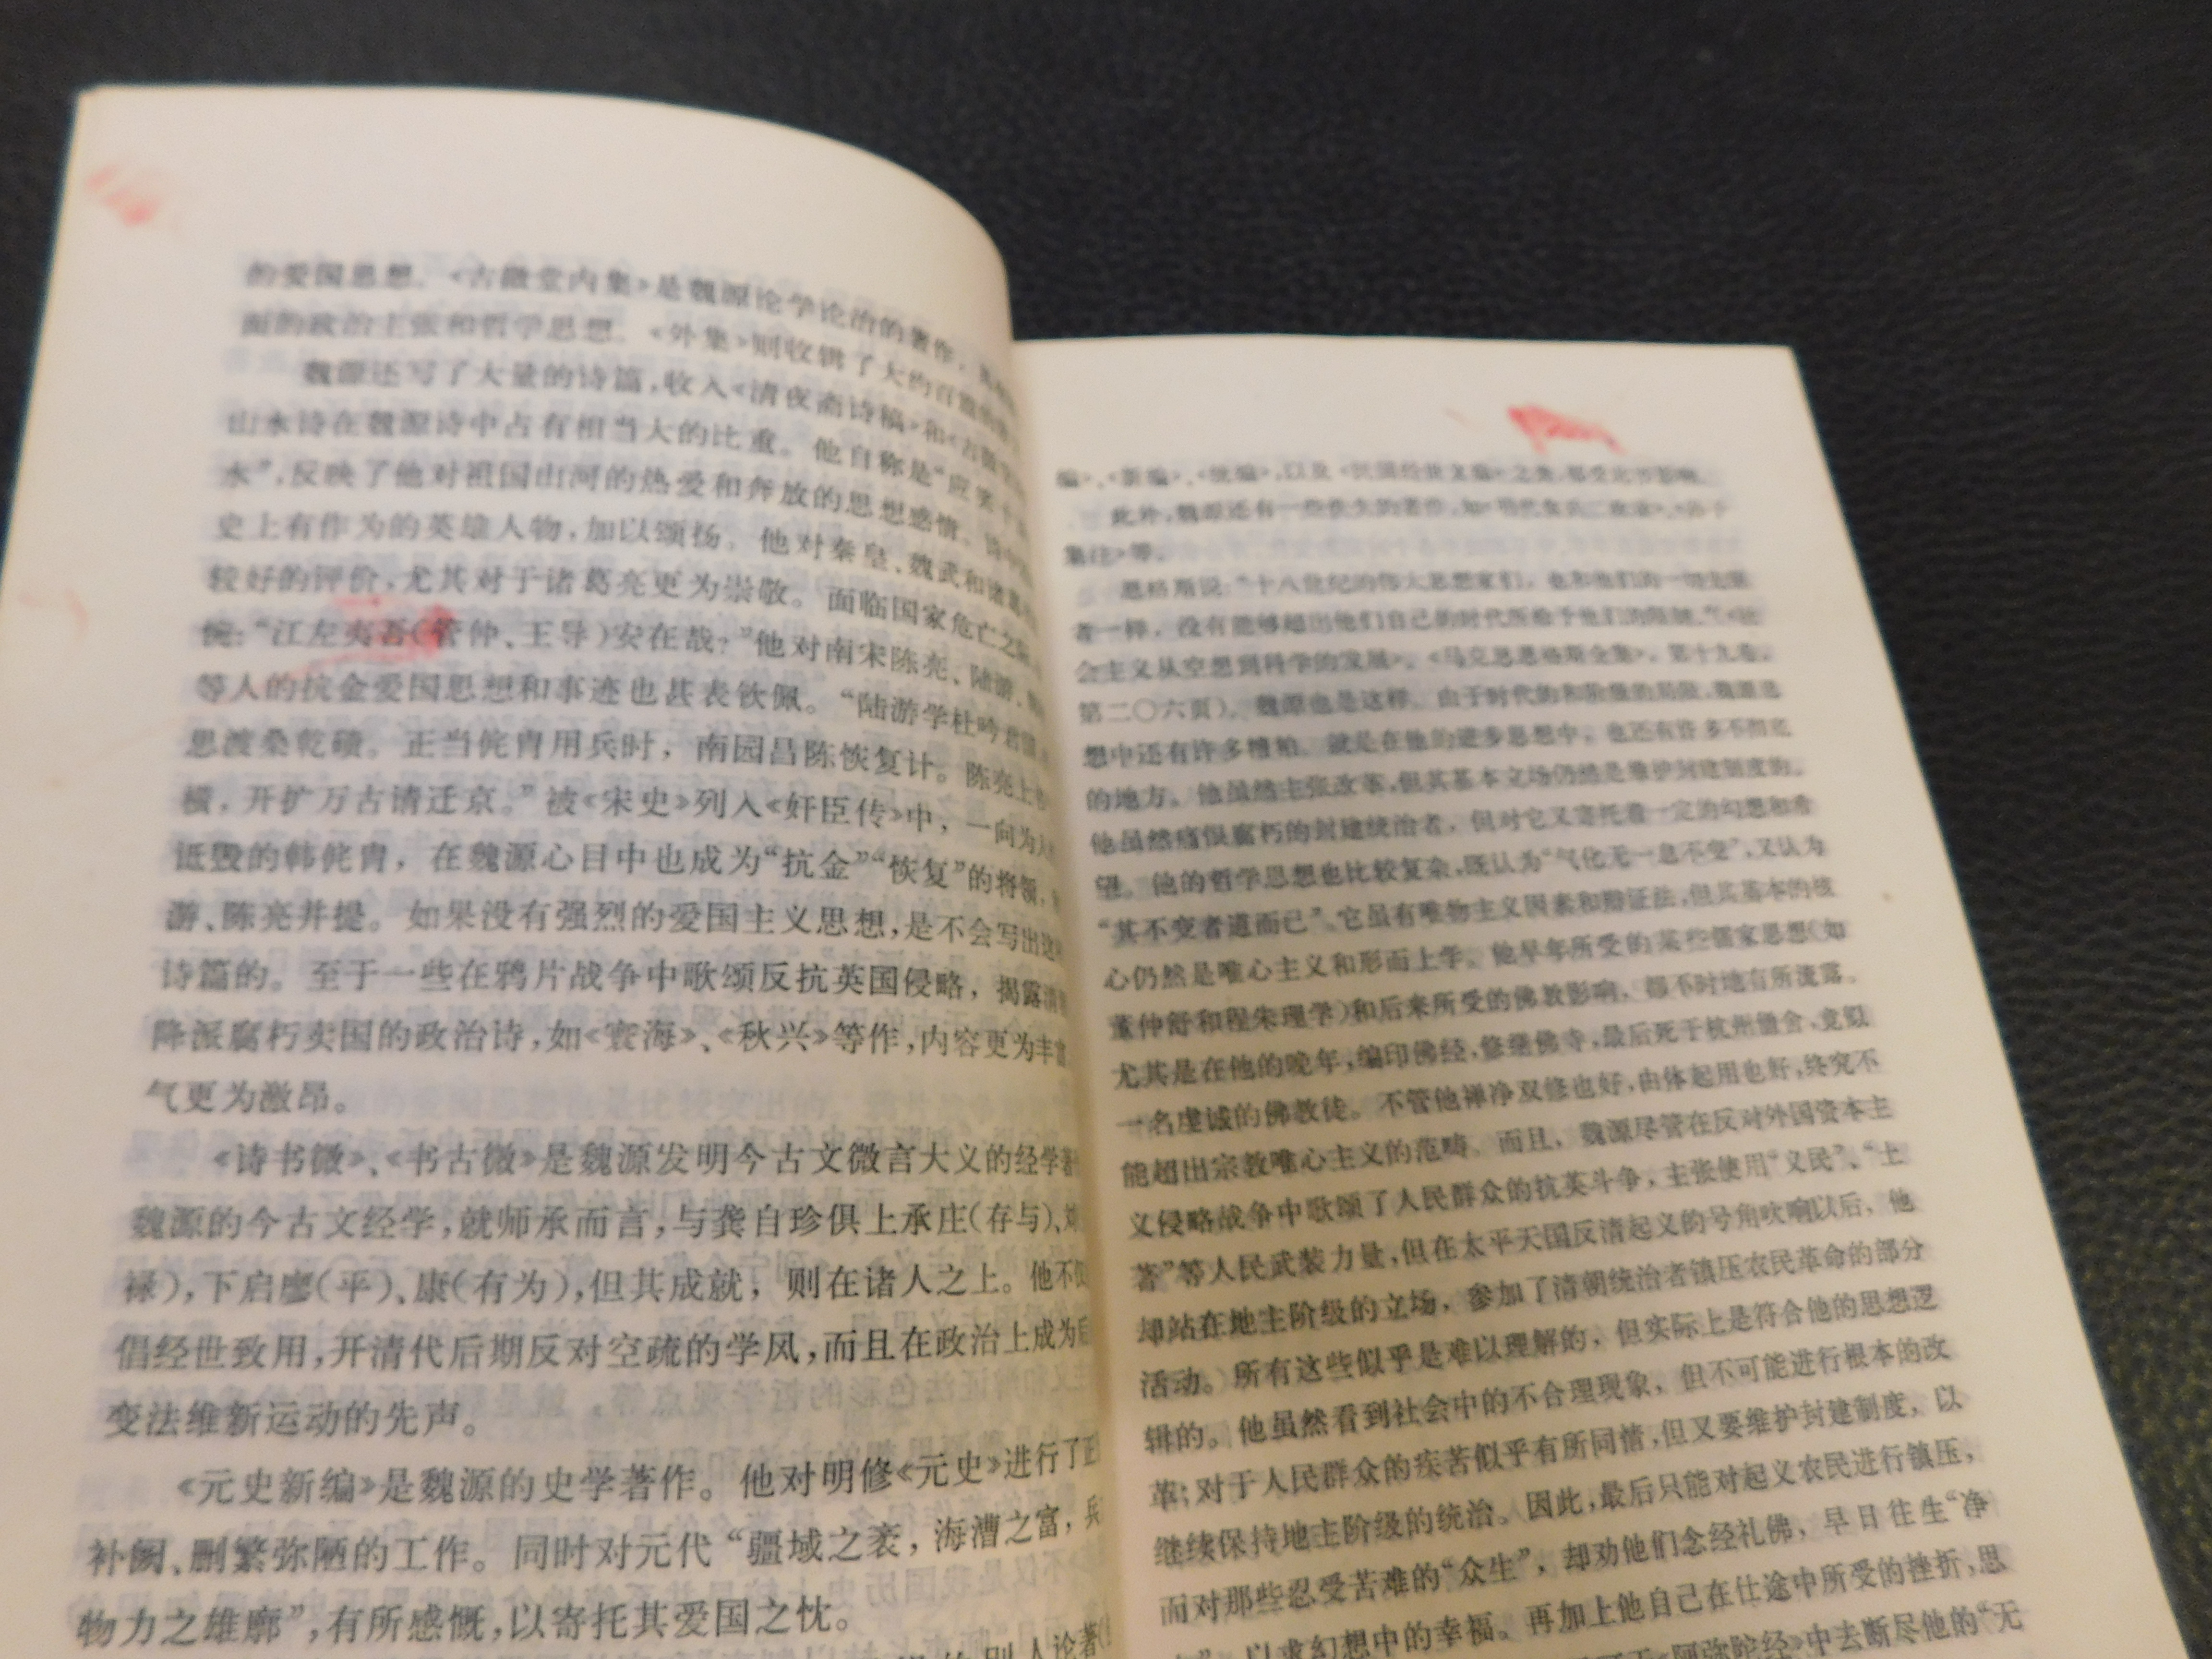 的爱国思想。《古微堂内集》是魏源论学论治的著作,
面的政治主张和哲学思想。《外集》则收辑了大约百篇
魏源还写了大量的诗篇,收入《清夜斋诗稿》和《古微
山水诗在魏源诗中占有相当大的比重。他自称是“应
水”,反映了他对祖国山河的热爱和奔放的思想感情。
史上有作为的英雄人物,加以颂扬。他对秦皇、魏武和诸葛
较好的评价,尤其对于诸葛亮更为崇敬。面临国家危亡之
慨:“江左夷吾(管仲、王导)安在哉?”他对南宋陈亮、陆游、
等人的抗金爱国思想和事迹也甚表钦佩。“陆游学杜吟
思渡桑乾碛。正当侂胄用兵时,南园昌陈恢复计。陈亮上
横,开扩万古请迁京。”被《宋史》列入《奸臣传》中,一向为人
诋毁的韩侂胄,在魏源心目中也成为“抗金”“恢复”的将领,
游、陈亮并提。如果没有强烈的爱国主义思想,是不会写出这
诗篇的。至于一些在鸦片战争中歌颂反抗英国侵略,揭露清
降派腐朽卖国的政治诗,如《寰海》、《秋兴》等作,内容更为丰富
气更为激昂。
《诗书微》、《书古微》是魏源发明今古文微言大义的经学著
魏源的今古文经学,就师承而言,与龚自珍俱上承庄(存与)、刘
禄),下启廖(平)、康(有为),但其成就,则在诸人之上。他不但
倡经世致用,开清代后期反对空疏的学风,而且在政治上成为后
变法维新运动的先声。
《元史新编》是魏源的史学著作。他对明修《元史》进行了正
补阙、删繁弥陋的工作。同时对元代“疆域之袤,海漕之富,兵
物力之雄廓”,有所感慨,以寄托其爱国之忱。
别人论著
编》、《新编》、《统编》,以及《民国经世文编》之类,都受此书影响。
此外,魏源还有一些佚失的著作,如《明代食兵二政录》、《孙子
集注》等。
恩格斯说:“十八世纪的伟大思想家们,也和他们的一切先驱
者一样,没有能够超出他们自己的时代所给予他们的限制。”(《社
会主义从空想到科学的发展》,《马克思恩格斯全集》,第十九卷,
第二〇六页)。魏源也是这样。由于时代的和阶级的局限,魏源思
想中还有许多糟粕。就是在他的进步思想中,也还有许多不彻底
的地方。他虽然主张改革,但其基本立场仍然是维护封建制度的。
他虽然痛恨腐朽的封建统治者,但对它又寄托着一定的幻想和希
望。他的哲学思想也比较复杂,既认为“气化无一息不变”,又认为
“其不变者道而已”。它虽有唯物主义因素和辩证法,但其基本的核
心仍然是唯心主义和形而上学。他早年所受的某些儒家思想(如
董仲舒和程朱理学)和后来所受的佛教影响,都不时地有所流露。
尤其是在他的晚年,编印佛经,修缮佛寺,最后死于杭州僧舍,竟似
一名虔诚的佛教徒。不管他禅净双修也好,由体起用也好,终究不
能超出宗教唯心主义的范畴。而且,魏源尽管在反对外国资本主
义侵略战争中歌颂了人民群众的抗英斗争,主张使用“义民”、“土
著”等人民武装力量,但在太平天国反清起义的号角吹响以后,他
却站在地主阶级的立场,参加了清朝统治者镇压农民革命的部分
活动。所有这些似乎是难以理解的,但实际上是符合他的思想逻
辑的。他虽然看到社会中的不合理现象,但不可能进行根本的改
革;对于人民群众的疾苦似乎有所同情,但又要维护封建制度,以
继续保持地主阶级的统治。因此,最后只能对起义农民进行镇压,
而对那些忍受苦难的“众生”,却劝他们念经礼佛,早日往生“净
以求幻想中的幸福。再加上他自己在仕途中所受的挫折,思
《阿弥陀经》中去断尽他的“无